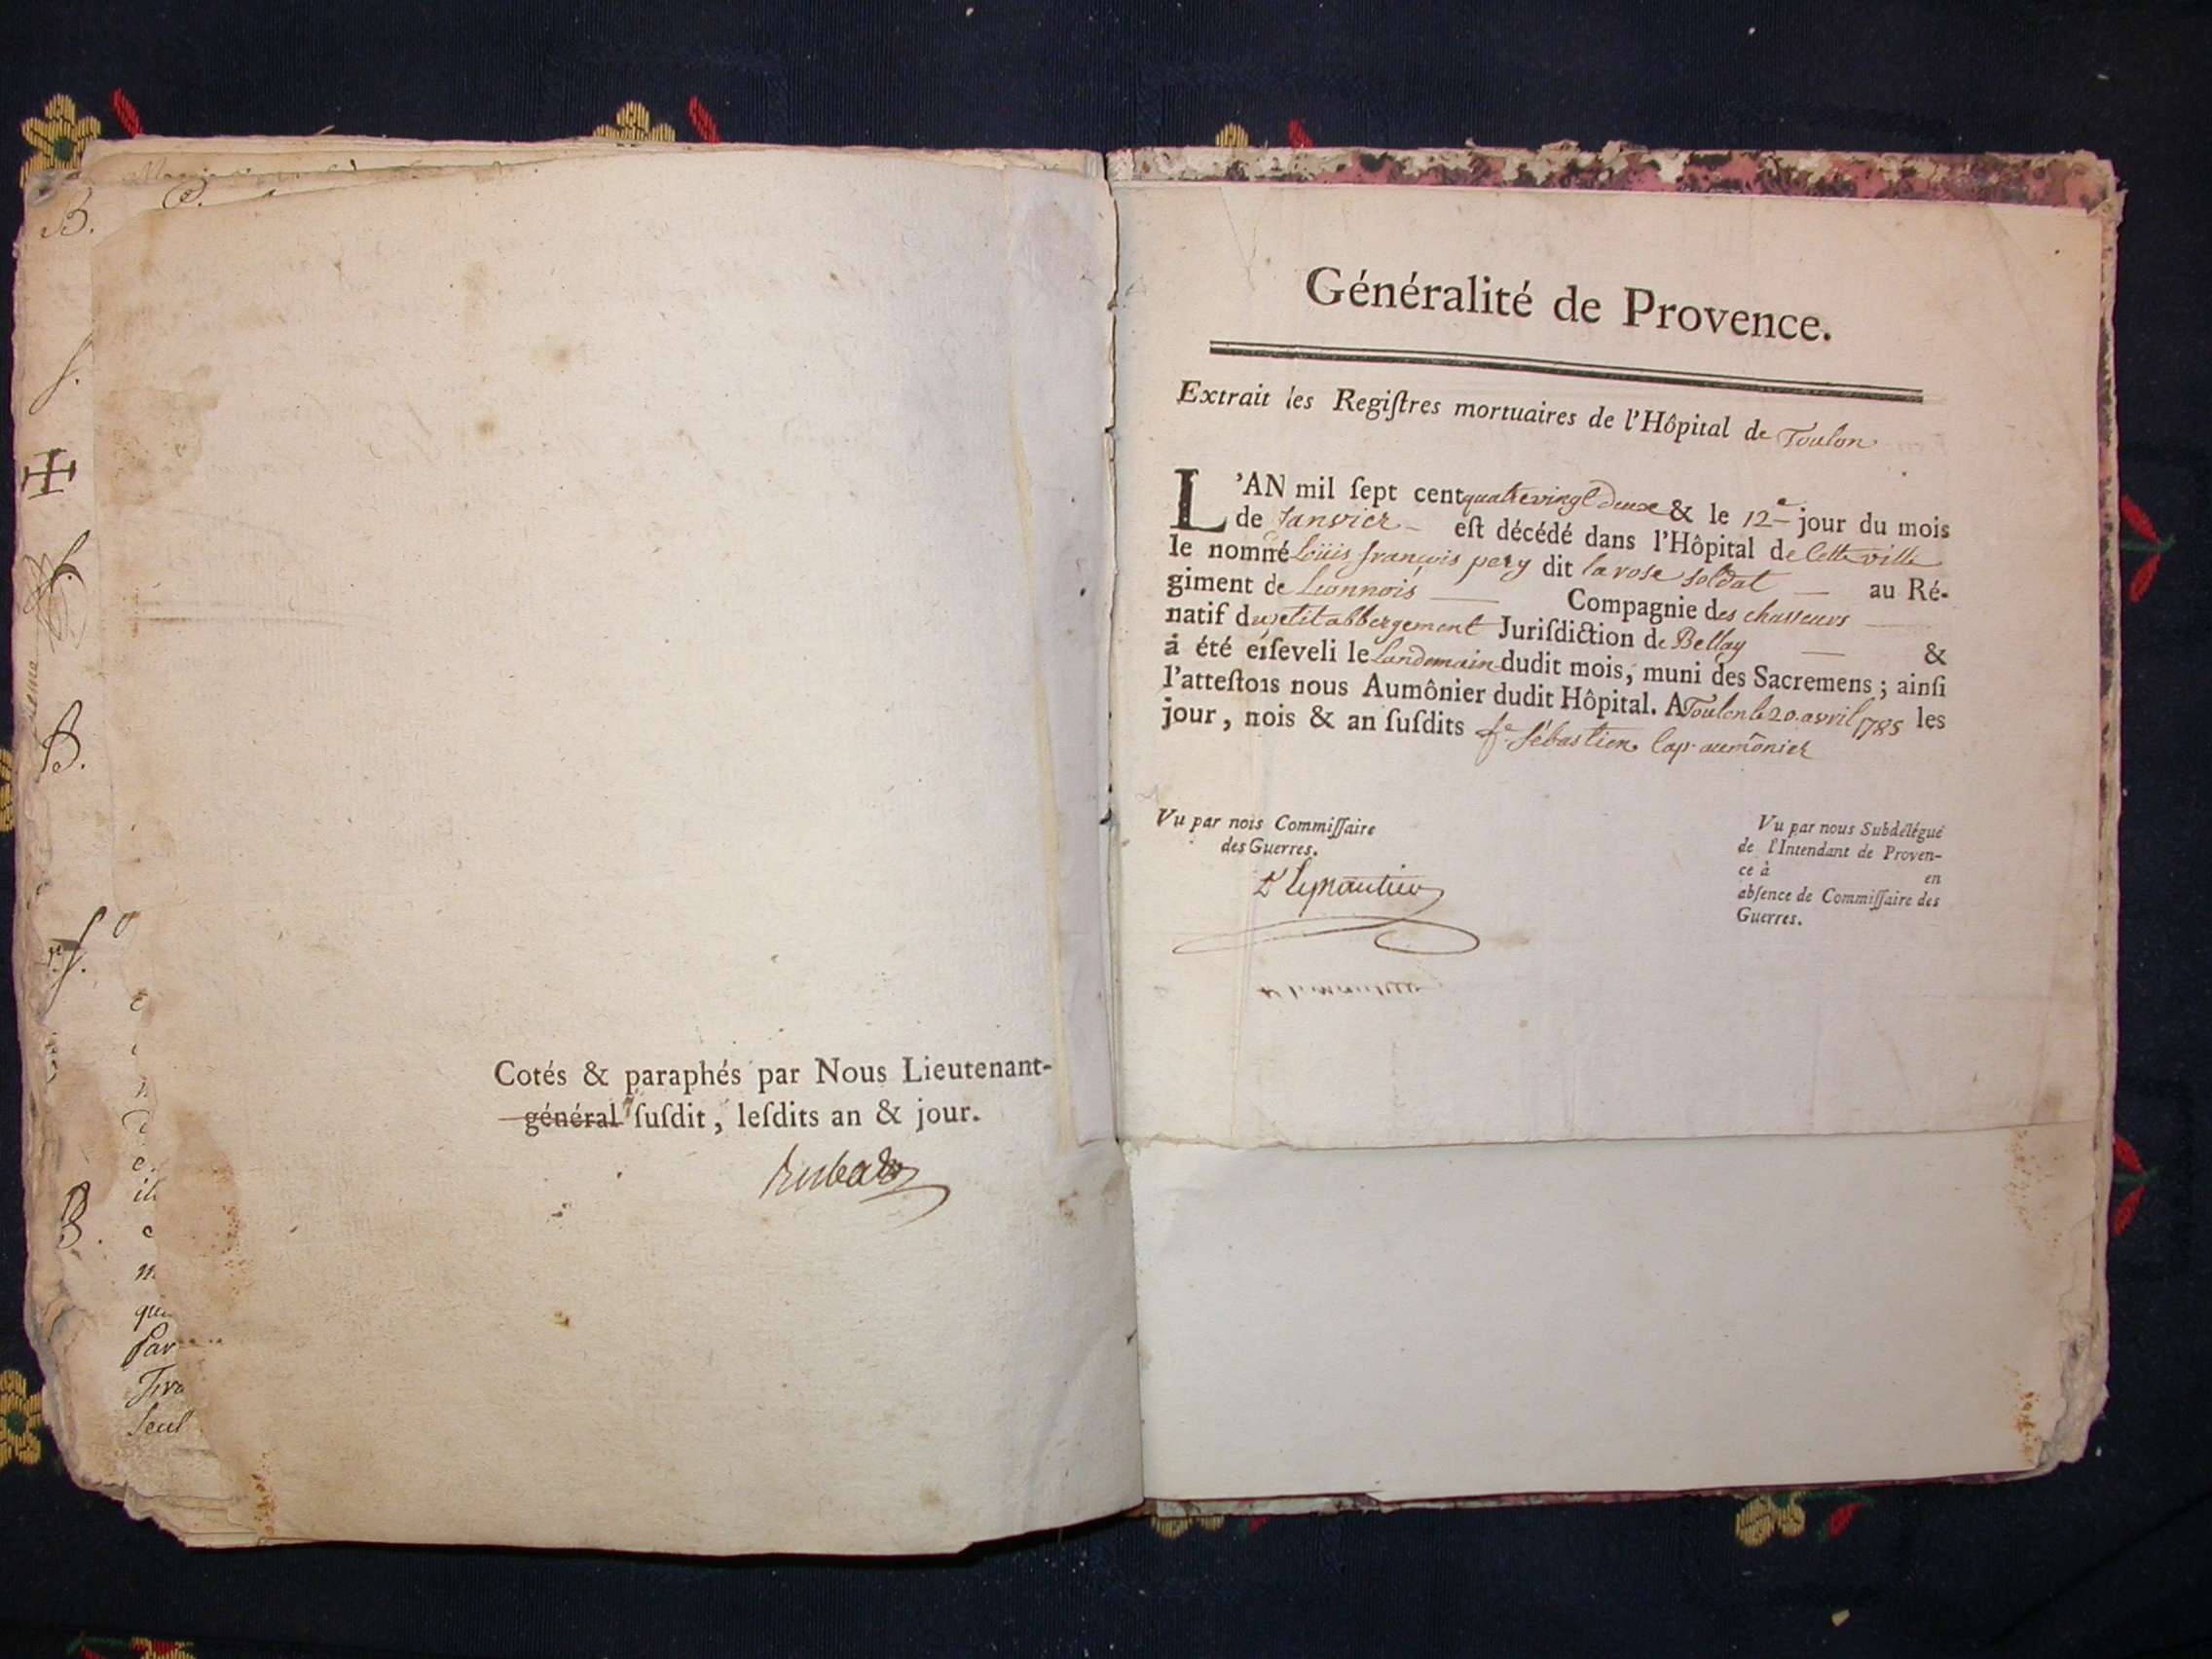 B.
S.
B.
S.
B.
qu
Par
Seul
Cotés & paraphés par Nous Lieutenant-
général ſuſdit, leſdits an & jour.
Généralité de Provence.
Extrait des Regiſtres mortuaires de l'Hôpital de Toulon
L'AN mil ſept cent quatrevingt deux & le 12e jour du mois
de Janvier - eſt décédé dans l'Hôpital de Cette ville
le nommé Loüis françois pery dit la rose soldat — au Ré-
giment de Lionnois — Compagnie des chasseurs —
natif du petit abbergement Juriſdiction de Bellay — &
à été enſeveli le Landemain dudit mois, muni des Sacremens; ainſi
l'atteſtons nous Aumônier dudit Hôpital. A Toulon le 20. avril 1785 les
jour, mois & an ſuſdits fe Sébastien Cap. aumônier
Vu par nous Commiſſaire
des Guerres.
Vu par nous Subdélégué
de l'Intendant de Proven-
ce à en
abſence de Commiſſaire des
Guerres.